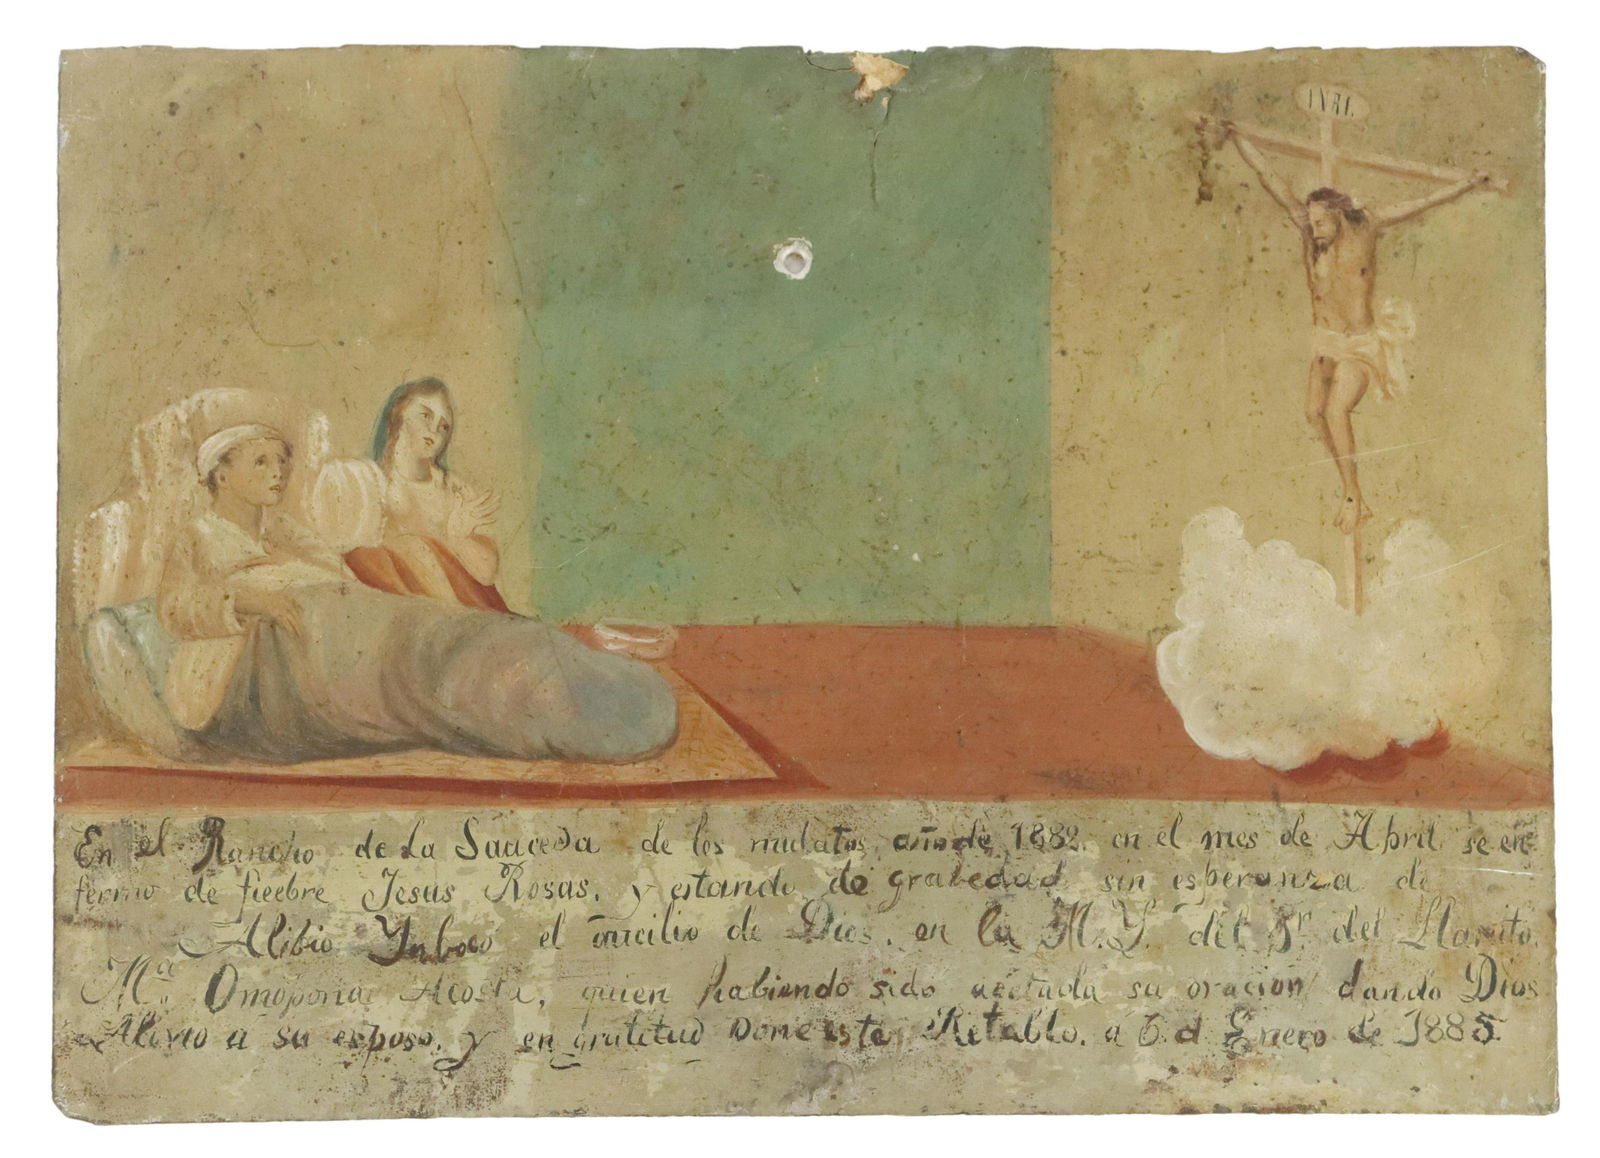 INRI.
En el Rancho de La Sauceda de los mulatos, año de 1882, en el mes de Abril, se en
fermo de fieebre Jesus Rosas, y estando de grabedad sin esperanza de
Alibio Ynboco el aucilio de Dios, en la M. Y. del Sr. del Llanito,
Ma. Omopona Acosta, quien habiendo sido acetada su oracion dando Dios
Alivio a su esposo, y en gratitud Done iste Retablo. a 6 d Enero de 1885